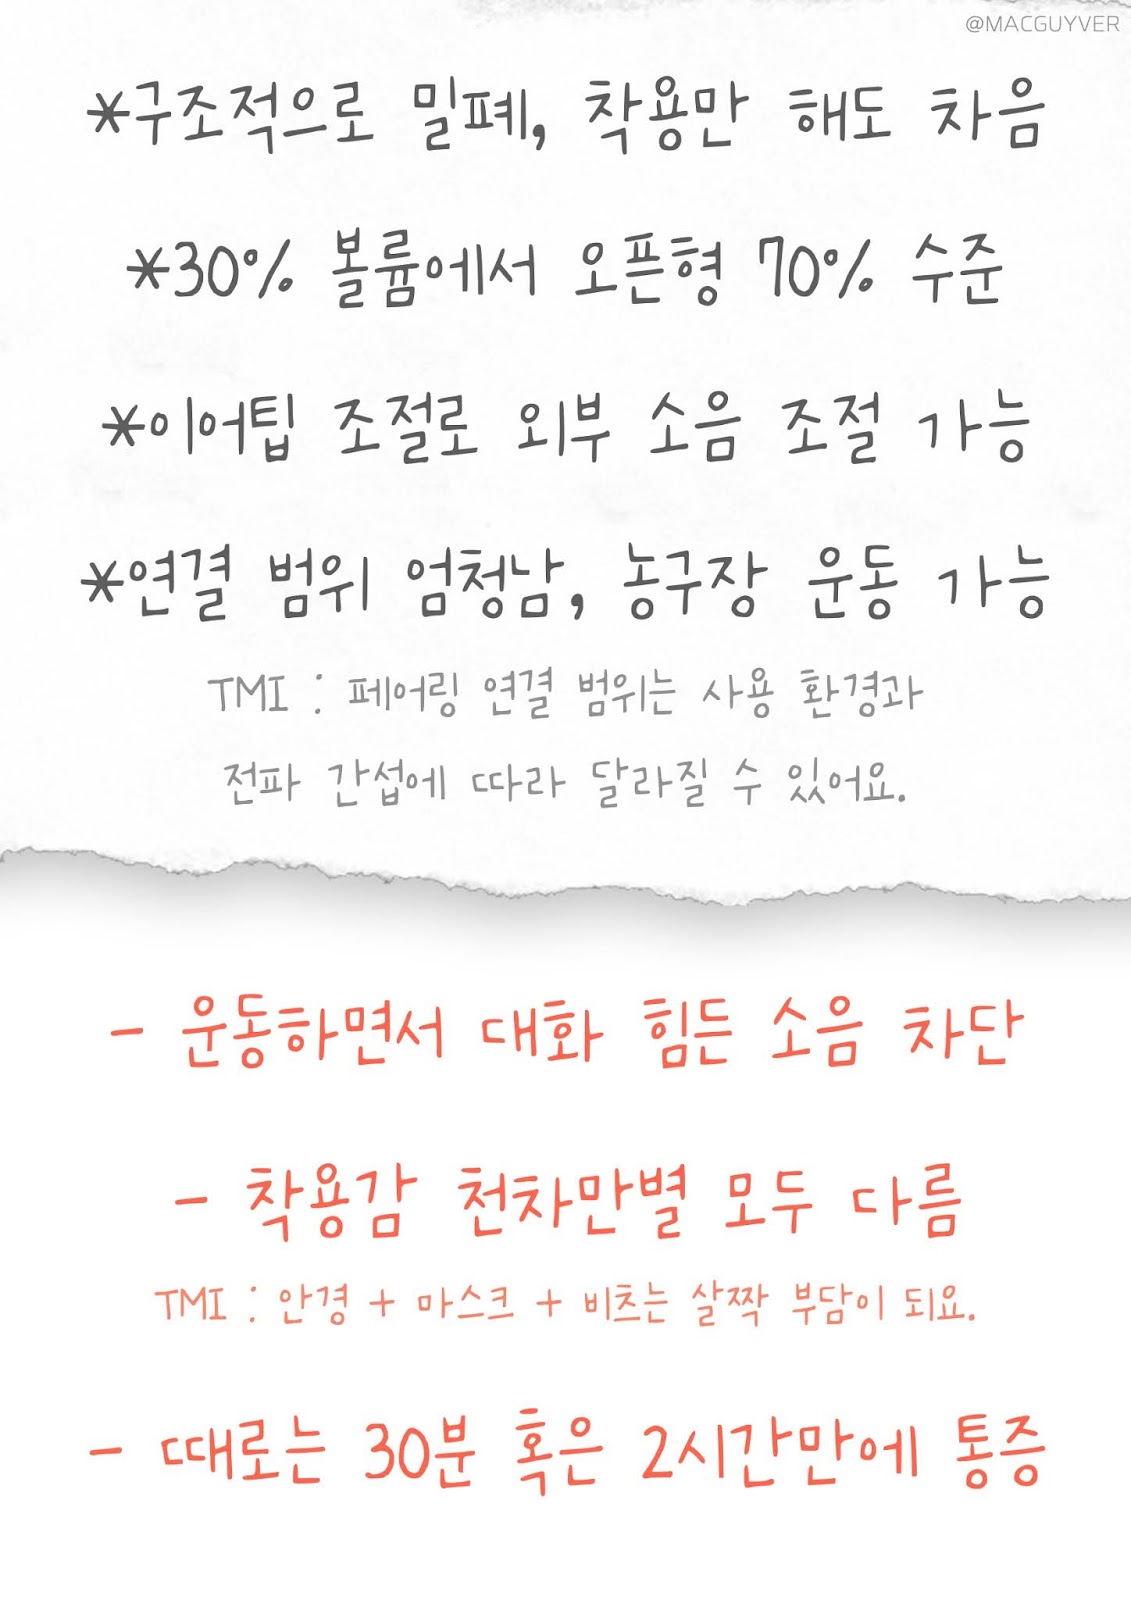 @MACGUYVER
*구조적으로 밀폐, 착용만 해도 차음
*30% 볼륨에서 오픈형 70% 수준
*이어팁 조절로 외부 소음 조절 가능
*연결 범위 엄청남, 농구장 운동 가능
TMI : 페어링 연결 범위는 사용 환경과
전파 간섭에 따라 달라질 수 있어요.
- 운동하면서 대화 힘든 소음 차단
- 착용감 천차만별 모두 다름
TMI : 안경 + 마스크 + 비츠는 살짝 부담이 되요.
- 때로는 30분 혹은 2시간만에 통증